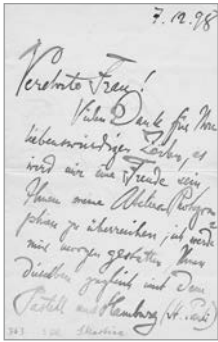 7.12.98
Verehrte Frau!
Vielen Dank für Ihre
liebenswürdigen Zeilen, es
wird mir eine Freude sein,
Ihnen meine
zu überreichen, ich werde
mir morgen gestatten, Ihnen
dieselben zugleich mit dem
Pastell aus Hamburg (St. Pauli)